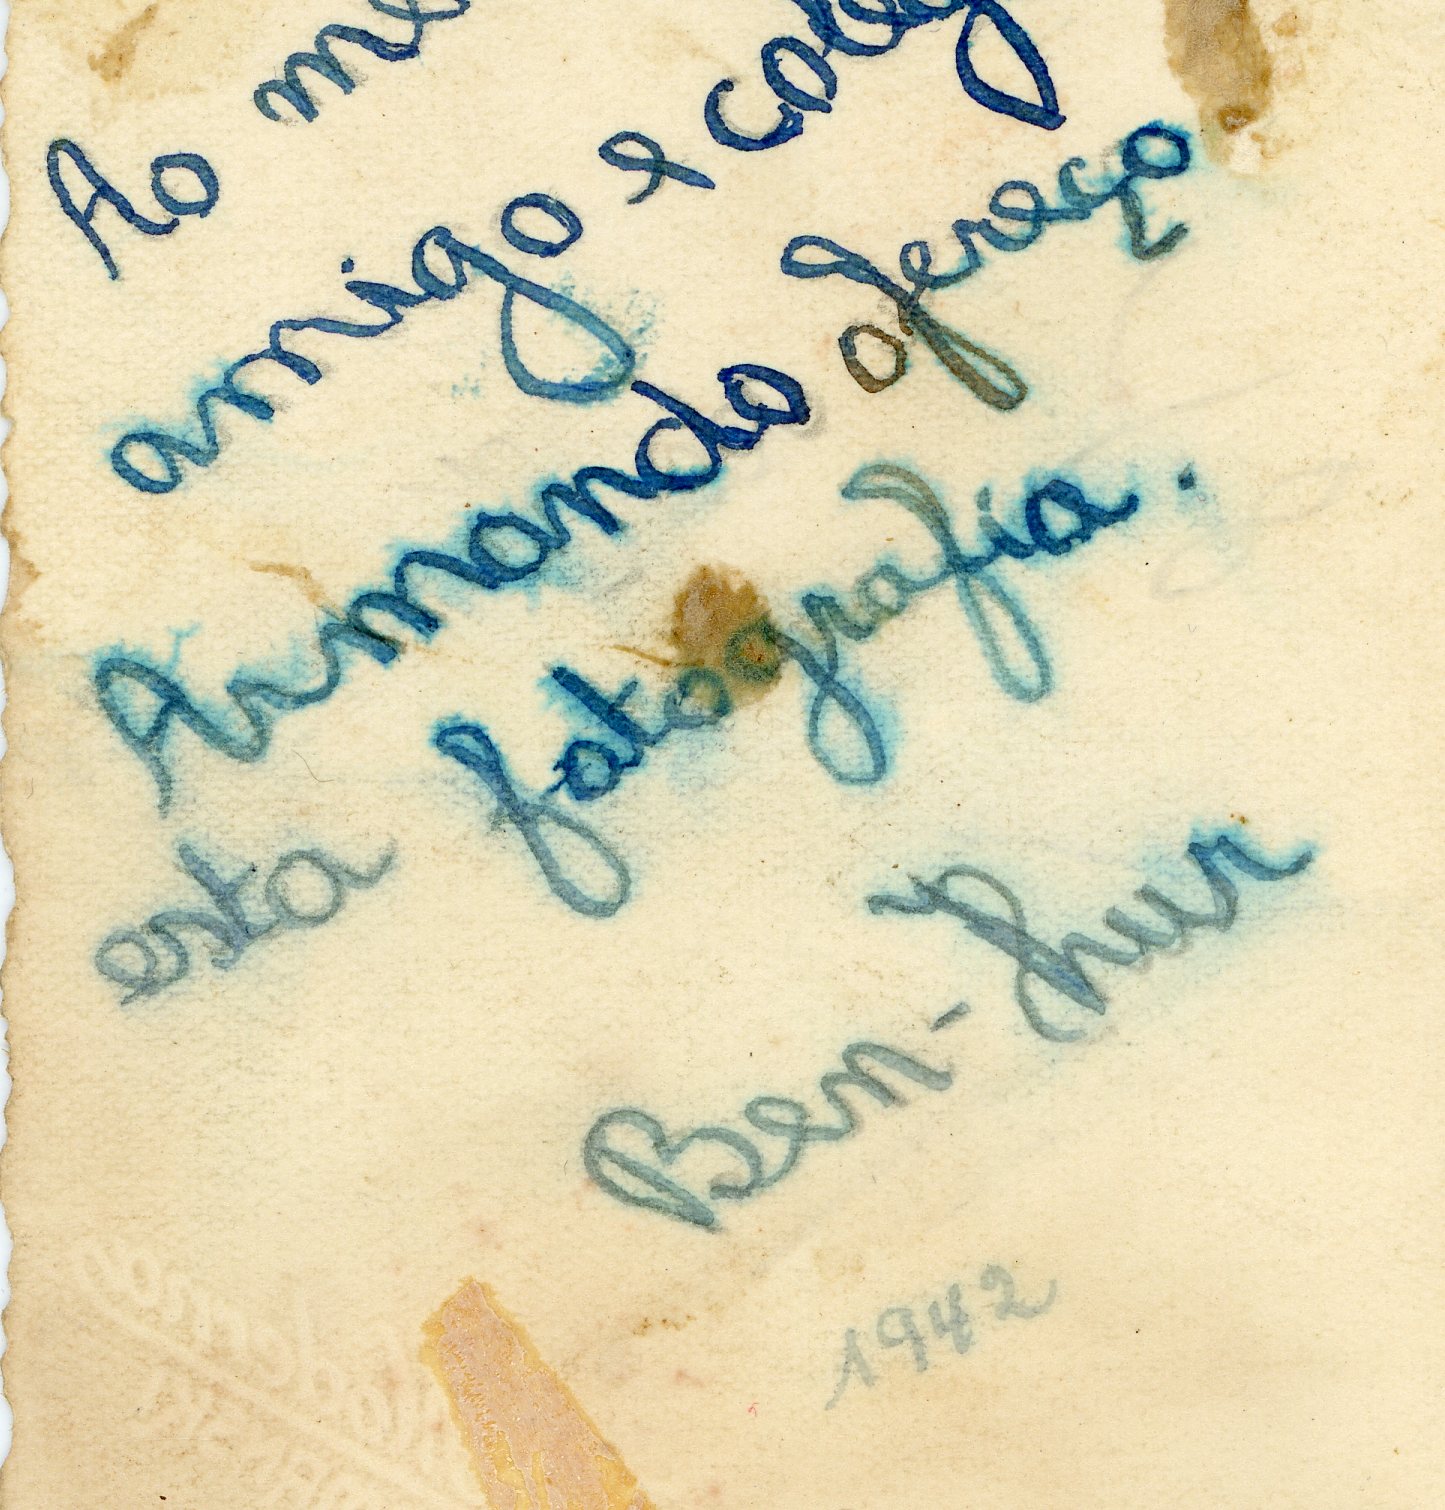 Ao me
amigo e coleg
Armando ofereço
esta fotografia.
Ben-Hur
1942